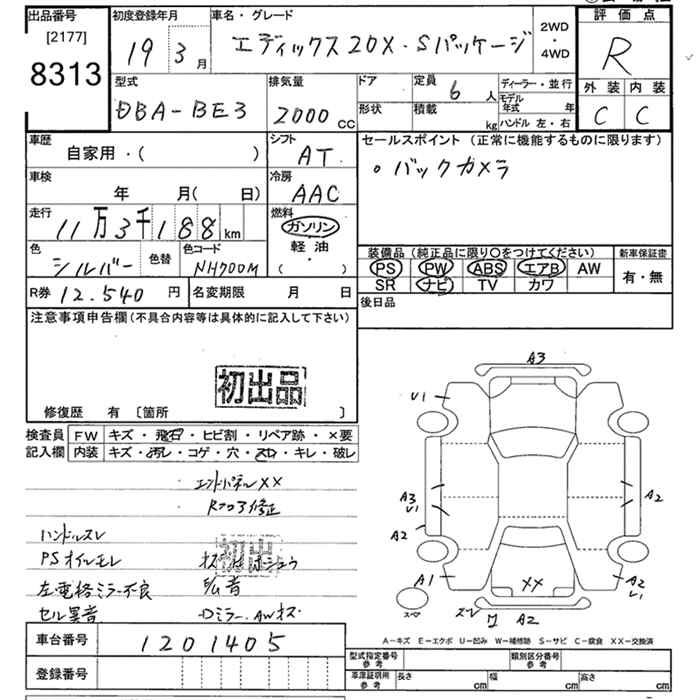 出品番号
[2177]
8313
初度登録年月
19 3月
車名・グレード
エディックス20X・Sパッケージ
2WD
・
4WD
評価点
R
外装 内装
C C
型式
DBA-BE3
排気量
2000cc
ドア
形状
定員 6人
積載 kg
ディーラー・並行
モデル年式 年
ハンドル 左・右
車歴
自家用・( )
シフト
AT
セールスポイント(正常に機能するものに限ります)
。バックカメラ
車検
年 月(日)
冷房
AAC
走行
11万3千188km
燃料
ガソリン
軽油
・
( )
色
シルバー
色替
色コード
NH700M
装備品(純正品に限り〇をつけてください)
PS PW ABS エアB AW
SR ナビ TV カワ
新車保証書
有・無
R券 12.540円
名変期限 月 日
後日品
注意事項申告欄(不具合内容等は具体的に記入して下さい)
初出品
修復歴 有 [箇所 ]
検査員記入欄
FW キズ・飛石・ヒビ割・リペア跡・×要
内装 キズ・汚レ・コゲ・穴・スレ・キレ・破レ
エンドパネルXX
Rフロア修正
ハンドルスレ
PSオイルモレ
初出
左電格ミラー不良
異音
セル異音
ミラー、AWキズ
A3
U1
A3
U1
A2
A2
A1
XX
A2
U1
スペア
スレ
A2
A-キズ E-エクボ U-凹み W-補修跡 S-サビ C-腐食 XX-交換済
車台番号 1201405
登録番号
型式指定番号
参考
類別区分番号
参考
車庫証明用
参考
長さ cm
幅 cm
高さ cm